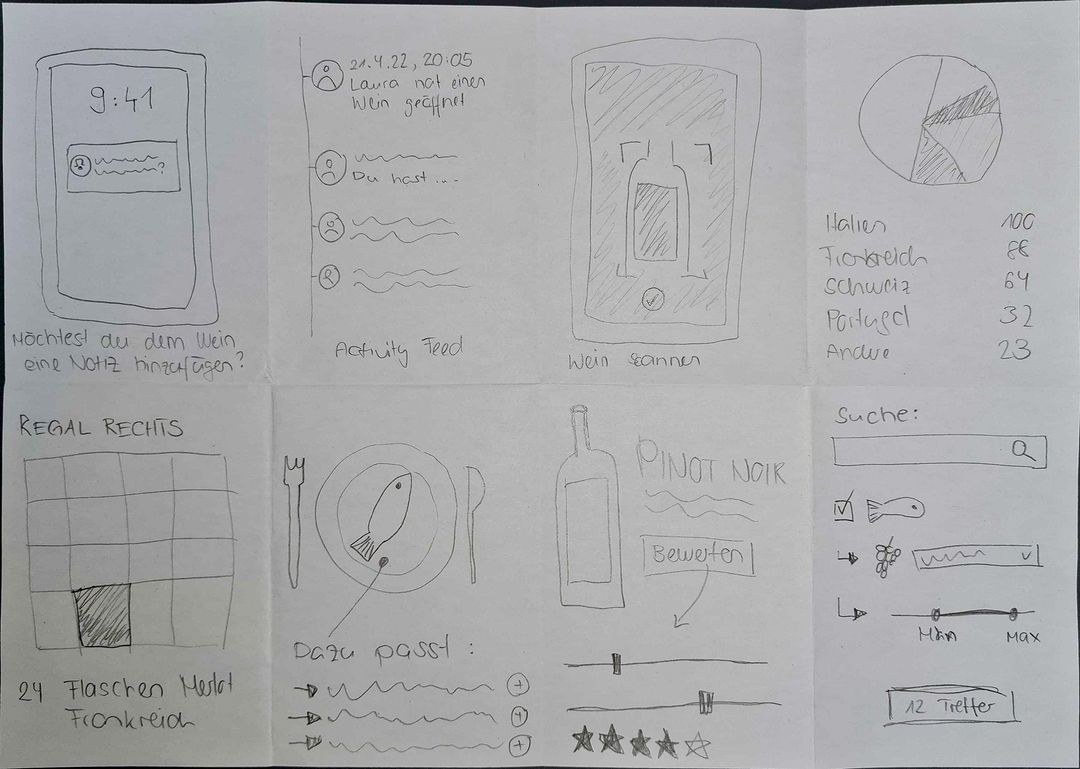 9:41
?
Möchtest du dem Wein
eine Notiz hinzufügen?
21.4.22, 20:05
Laura hat einen
Wein geöffnet
Du hast ...
Activity Feed
Wein scannen
Italien 100
Frankreich 88
Schweiz 64
Portugal 32
Andere 23
REGAL RECHTS
24 Flaschen Merlot
Frankreich
Dazu passt:
PINOT NOIR
Bewerten
Suche:
Min Max
12 Treffer